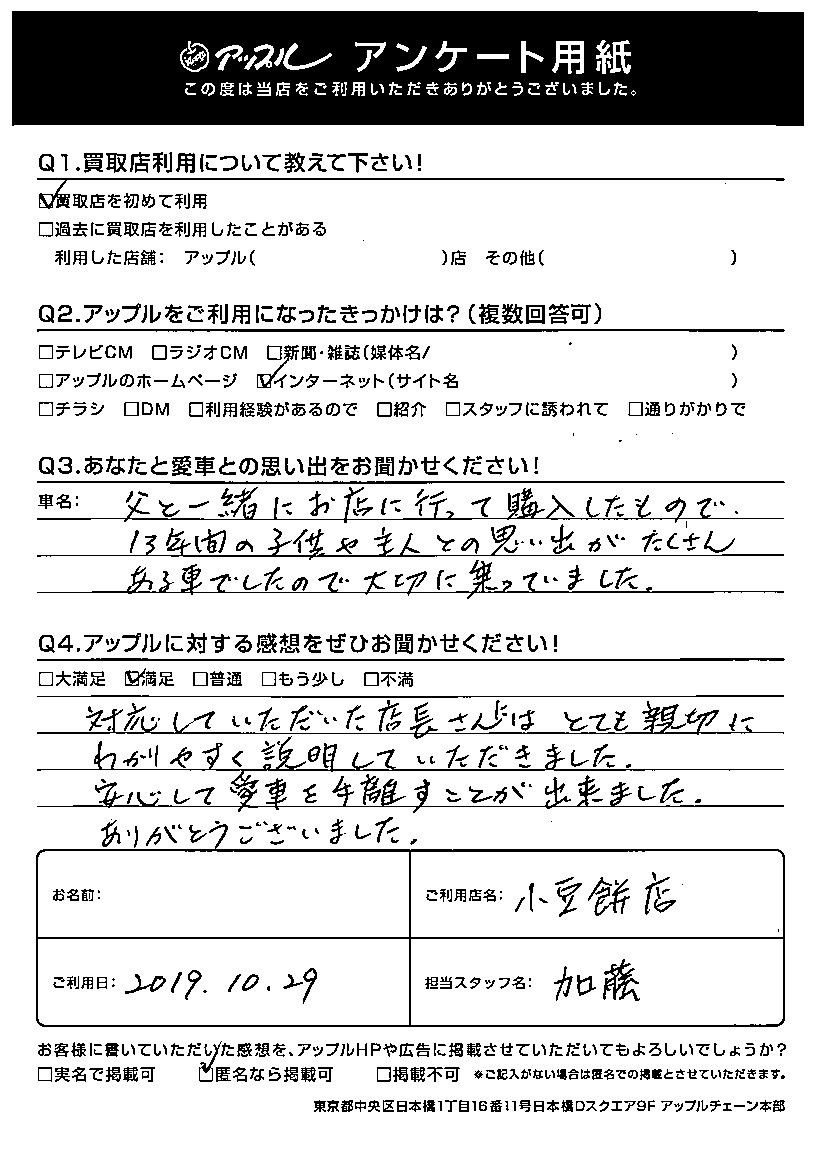 アップル アンケート用紙
この度は当店をご利用いただきありがとうございました。
Q1.買取店利用について教えて下さい!
☑買取店を初めて利用
□過去に買取店を利用したことがある
利用した店舗: アップル( )店 その他( )
Q2.アップルをご利用になったきっかけは?(複数回答可)
□テレビCM □ラジオCM □新聞・雑誌(媒体名/ )
□アップルのホームページ ☑インターネット(サイト名 )
□チラシ □DM □利用経験があるので □紹介 □スタッフに誘われて □通りがかりで
Q3.あなたと愛車との思い出をお聞かせください!
車名: 父と一緒にお店に行って購入したもので、
13年間の子供や主人との思い出がたくさん
ある車でしたので大切に乗っていました。
Q4.アップルに対する感想をぜひお聞かせください!
□大満足 ☑満足 □普通 □もう少し □不満
対応していただいた店長さんは とても親切に
わかりやすく説明していただきました。
安心して愛車を手離すことが出来ました。
ありがとうございました。
お名前:
ご利用店名: 小豆餅店
ご利用日: 2019.10.29
担当スタッフ名: 加藤
お客様に書いていただいた感想を、アップルHPや広告に掲載させていただいてもよろしいでしょうか?
□実名で掲載可 ☑匿名なら掲載可 □掲載不可 ※ご記入がない場合は匿名での掲載とさせていただきます。
東京都中央区日本橋1丁目16番11号日本橋Dスクエア9F アップルチェーン本部